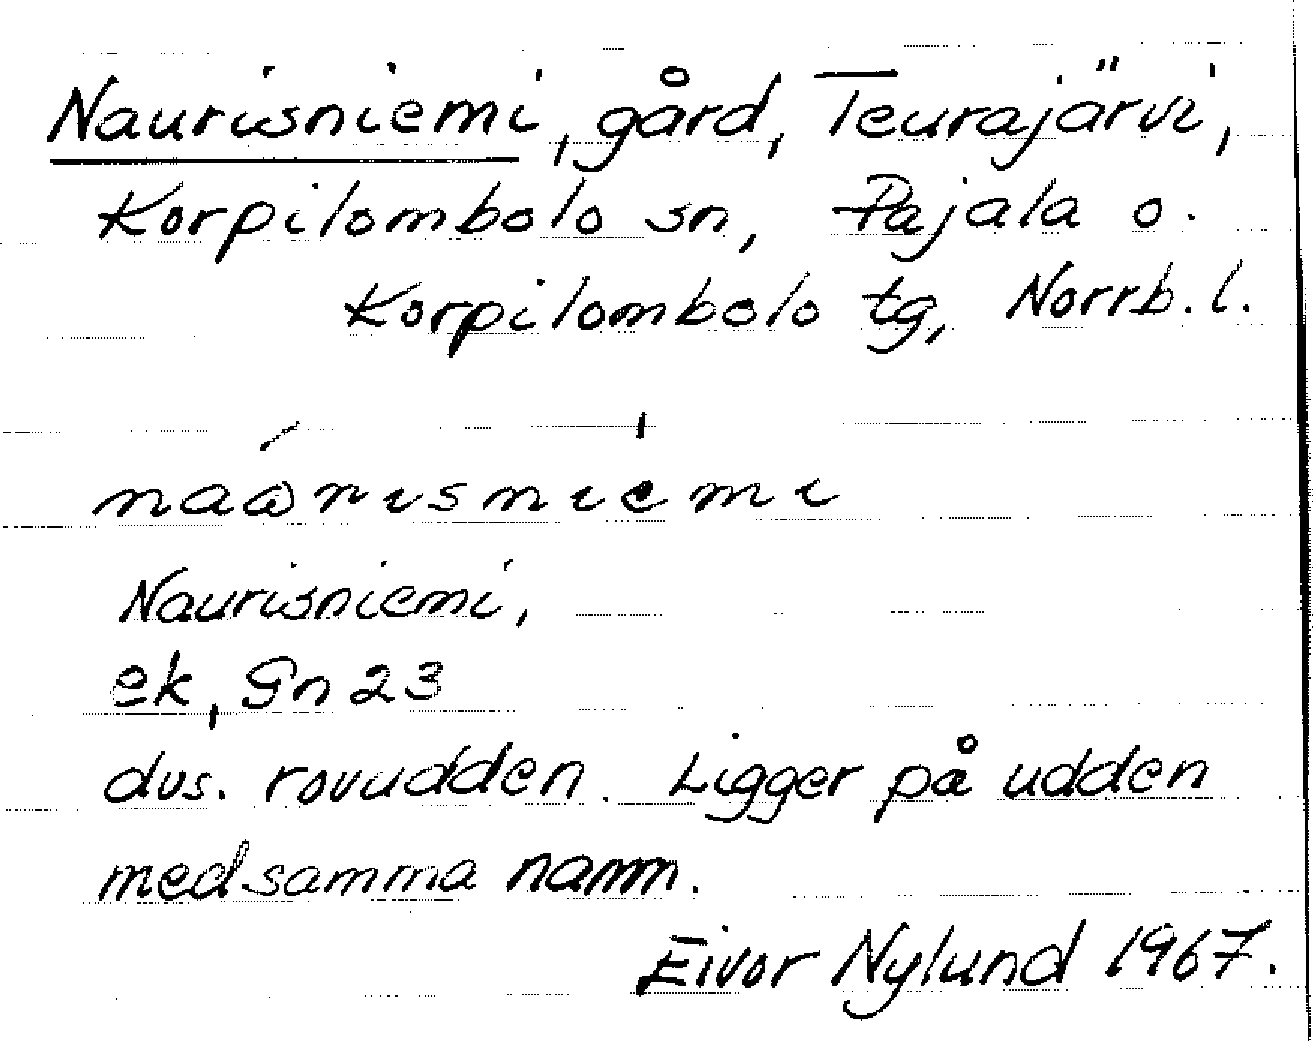 Naurisniemi, gård, Teurajärvi,
Korpilombolo sn, Pajala o.
Korpilombolo tg, Norrb. l.
naὼrisniemi
Naurisniemi,
ek, Gn 23
dvs. rovudden. Ligger på udden
med samma namn.
Eivor Nylund 1967.